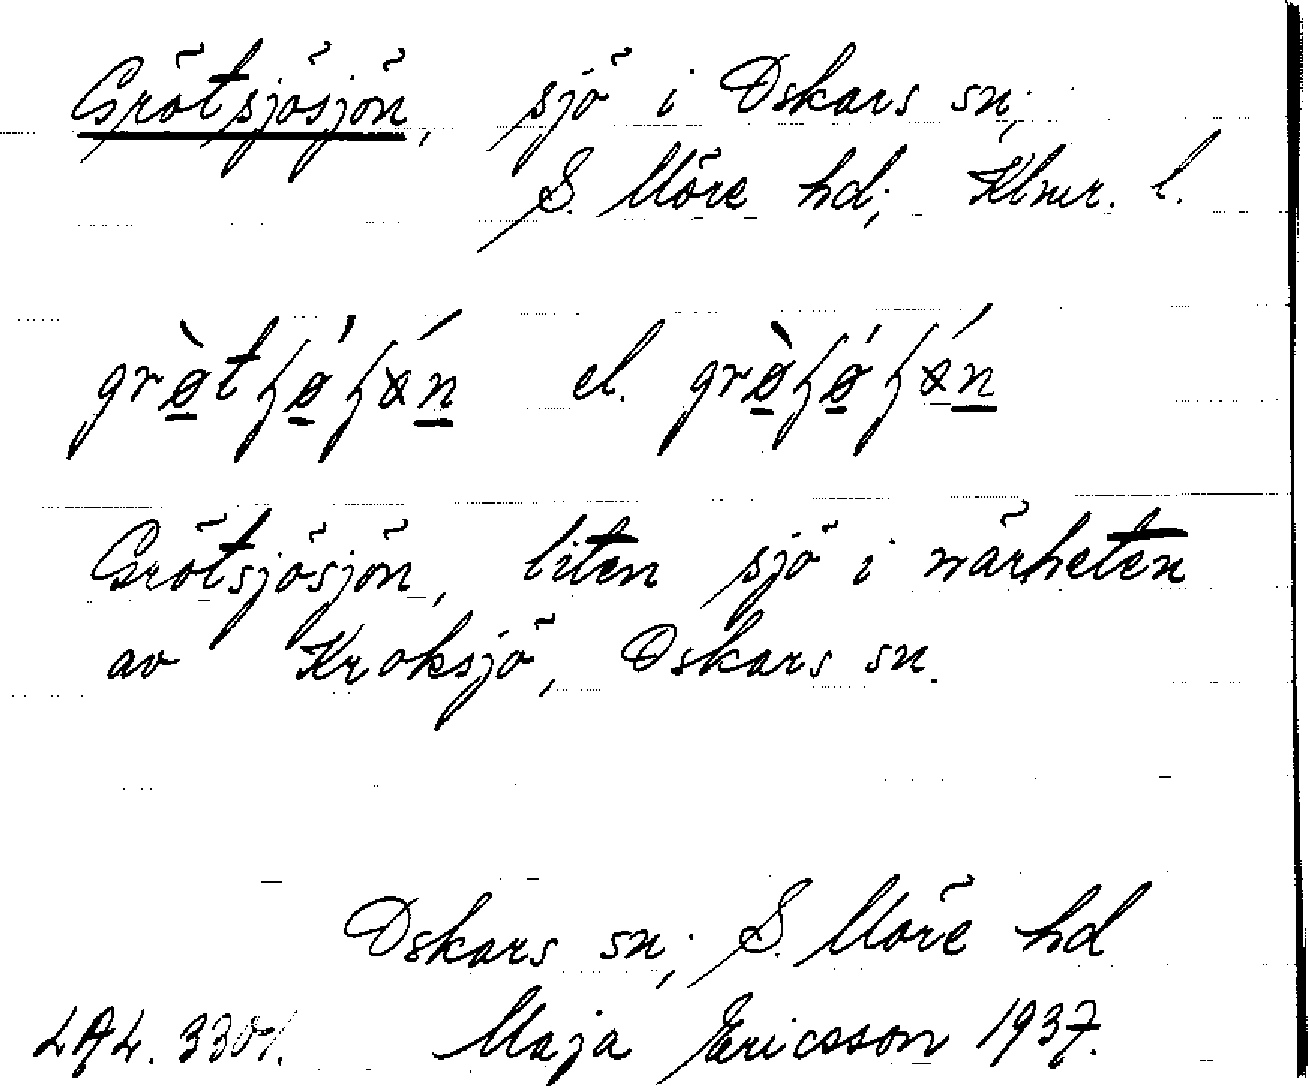 Grötsjösjön, sjö i Oskars sn;
S. Möre hd; Klmr. l.
el.
Grötsjösjön, liten sjö i närheten
av Kroksjö, Oskars sn.
Oskars sn; S. Möre hd
LAL. Maja Ericsson 1937.